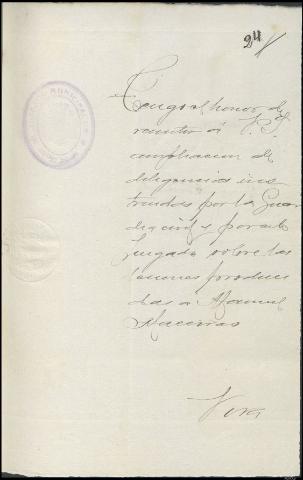 24
Tengo el honor de
remitir á V. S.
ampliacion de
diligencias ins
truidas por la Guar
dia civil y por este
Juzgado sobre las
lesiones produci
das a Manuel